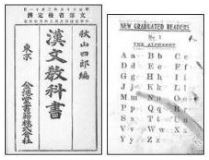 文部省檢定濟
秋山四郎編
漢文教科書
東京
金港堂書籍株式會社
NEW GRADUATED READERS
No 1
THE ALPHABET
Aa Bb Cc
Dd Ee Ff
Gg Hh Ii
Jj Kk Ll
Mm Nn Oo
Pp Qq Rr
Ss Tt Uu
Vv Ww Xx
Yy Zz